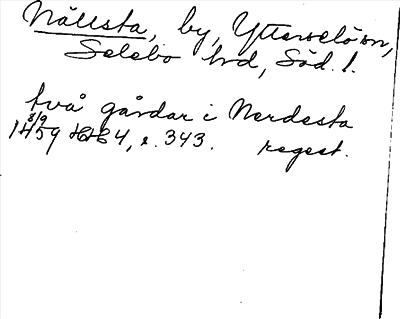 Nällsta, by, Ytterselö sn,
Selebo hrd, Söd. l.
två gårdar i Nerdesta
8/9
1459 34, s. 343. regest.